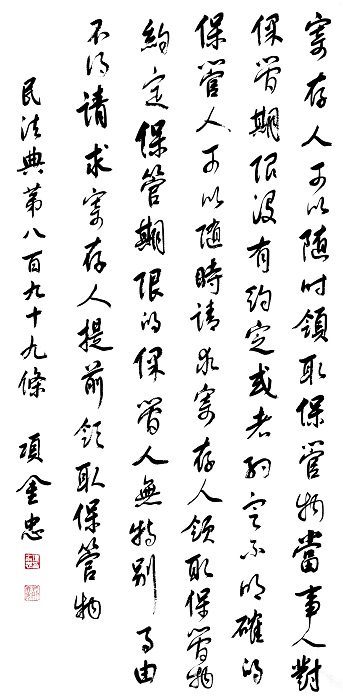 寄存人可以随时領取保管物當事人對
保管期限没有约定或者約定不明確的
保管人可以随時請求寄存人領取保管物
約定保管期限的保管人無特别事由
不得請求寄存人提前領取保管物
民法典第八百九十九條 項金忠